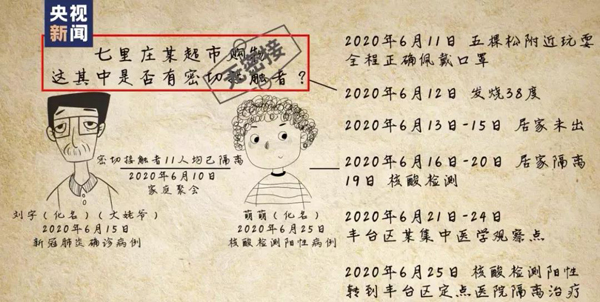 央视
新闻
七里庄某超市购物
无密接
这其中是否有密切接触者？
密切接触者11人均已隔离
2020年6月10日
家庭聚会
刘宇（化名）（大姥爷）
2020年6月15日
新冠肺炎确诊病例
萌萌（化名）
2020年6月25日
核酸检测阳性病例
2020年6月11日 五棵松附近玩耍
全程正确佩戴口罩
2020年6月12日 发烧38度
2020年6月13日-15日 居家未出
2020年6月16日-20日 居家隔离
19日 核酸检测
2020年6月21日-24日
丰台区某集中医学观察点
2020年6月25日 核酸检测阳性
转到丰台区定点医院隔离治疗